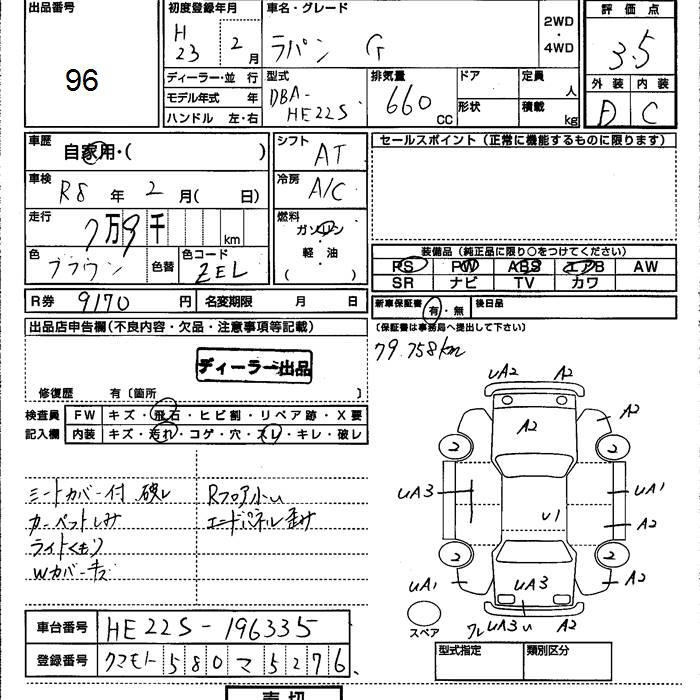 出品番号
96
初度登録年月
H23 2月
車名・グレード
ラパン G
2WD・4WD
評価点
3.5
外装 内装
D C
ディーラー・並行
モデル年式 年
ハンドル 左・右
型式
DBA-HE22S
排気量
660 CC
ドア
形状
定員 人
積載 kg
車歴
自家用・( )
シフト
AT
セールスポイント (正常に機能するものに限ります)
車検
R8年 2月( 日)
冷房
A/C
走行
7万9千 km
燃料
ガソリン・軽・油
( )
色
ブラウン
色替
色コード
ZEL
装備品 (純正品に限り○をつけてください)
PS PW ABS エアB AW
SR ナビ TV カワ
R券 9170円
名変期限 月 日
新車保証書 有・無
後日品
(保証書は事務局へ提出して下さい)
79.758km
出品店申告欄(不良内容・欠品・注意事項等記載)
ディーラー出品
修復歴 有〔箇所 〕
検査員記入欄
FW キズ・飛石・ヒビ割・リペア跡・X要
内装 キズ・汚れ・コゲ・穴・スレ・キレ・破レ
シートカバー付 破レ
カーペットしみ
ライトくもり
Wカバーキズ
Rフロア小U
エンドパネル歪み
UA2 A2
A2 A2
2 2
UA3 UA1
U1 A2
2 2
UA1 UA3 A2
スペア
ワレ UA3 U A2
車台番号 HE22S-196335
登録番号 クマモト 580 マ 5276
型式指定
類別区分
売切